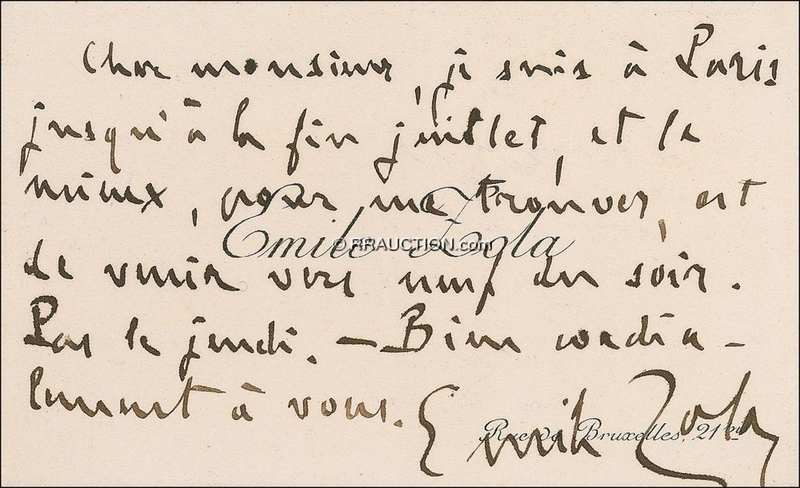 Cher monsieur, je suis à Paris
jusqu'à la fin juillet, et le
mieux, pour me trouver, est
Emile Zola
© RRAUCTION.com
de venir vers neuf du soir.
Pas le jeudi. — Bien cordia-
lement à vous.
Emile Zola
Rue de Bruxelles, 21 bis